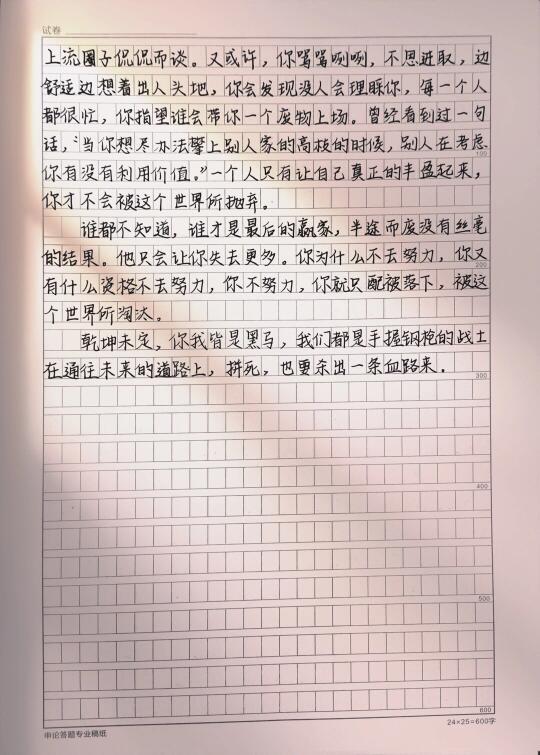 试卷
上流圈子侃侃而谈。又或许，你骂骂咧咧，不思进取，边
舒适边想着出人头地，你会发现没人会理睬你，每一个人
都很忙，你指望谁会带你一个废物上场。曾经看到过一句
话，“当你想尽办法攀上别人家的高枝的时候，别人在考虑
100
你有没有利用价值。”一个人只有让自己真正的丰盈起来，
你才不会被这个世界所抛弃。
谁都不知道，谁才是最后的赢家，半途而废没有丝毫
的结果。他只会让你失去更多。你为什么不去努力，你又
200
有什么资格不去努力，你不努力，你就只配被落下，被这
个世界所淘汰。
乾坤未定，你我皆是黑马，我们都是手握钢枪的战士
在通往未来的道路上，拼死，也要杀出一条血路来．
300
400
500
600
申论答题专业稿纸
24×25=600字